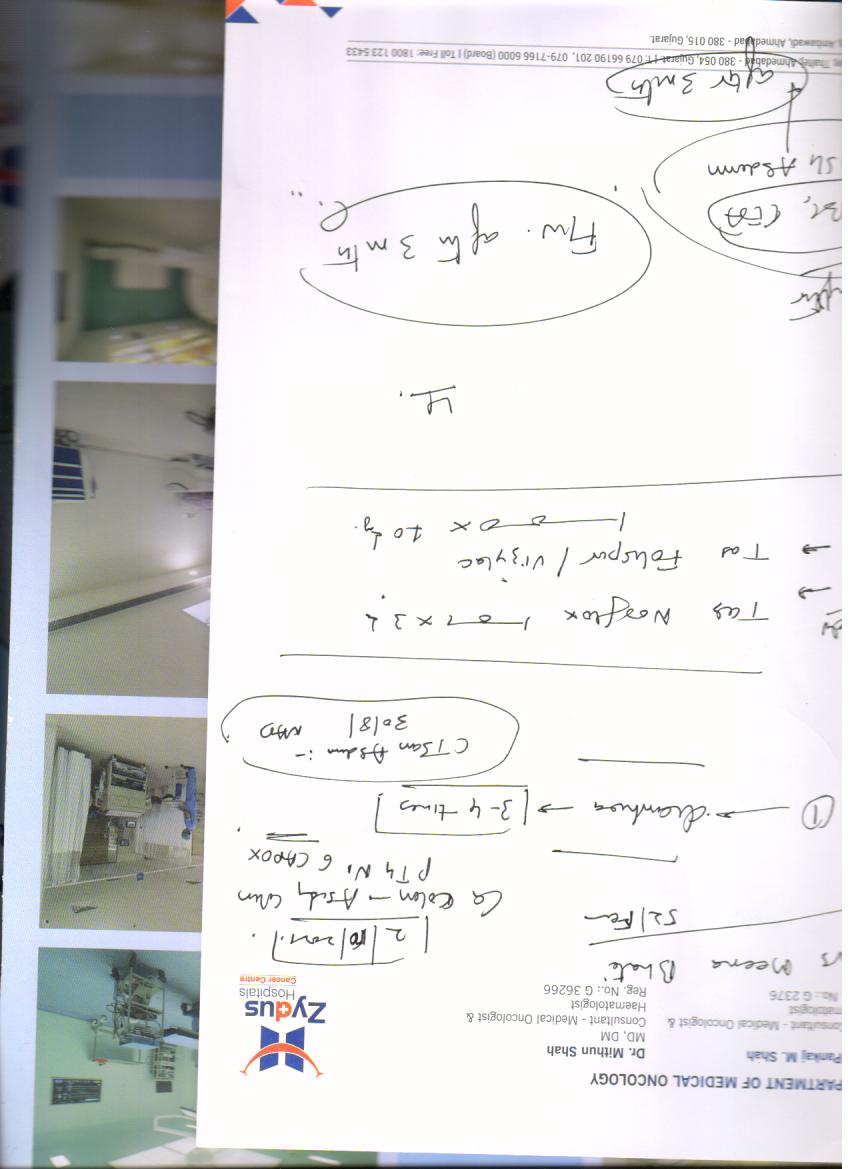 PARTMENT OF MEDICAL ONCOLOGY
Pankaj M. Shah
Consultant - Medical Oncologist &
matologist
No.: G 2376
Dr. Mithun Shah
MD, DM
Consultant - Medical Oncologist &
Haematologist
Reg. No.: G 36266
Zydus
Hospitals
Cancer Centre
Meena Bhati
52/Fem
Ca Colon
pT4 N1 6 CAPOX
① → diarrhoea → 3-4 times
CT Scan Abdomen :-
30/8/ NAD
Tab Norflox 1-0-1 x 3 d
→ Tab Folispor / Vizylac
1-0-0 x 10 dy.
F/w. after 3 mth
after
CEA
Abdomen
after 3 mth
Thaltej, Ahmedabad - 380 054, Gujarat. | T: 079 66190 201, 079-7166 6000 (Board) | Toll Free: 1800 123 5433
Ambawadi, Ahmedabad - 380 015, Gujarat.